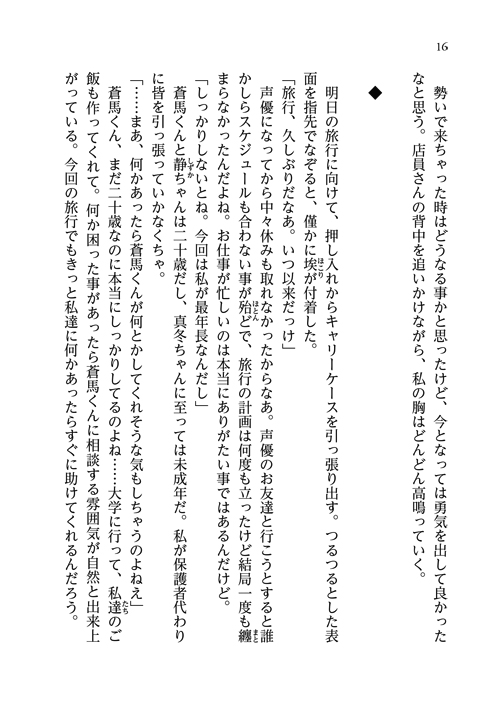 16
勢いで来ちゃった時はどうなる事かと思ったけど、今となっては勇気を出して良かった
なと思う。店員さんの背中を追いかけながら、私の胸はどんどん高鳴っていく。
◆
明日の旅行に向けて、押し入れからキャリーケースを引っ張り出す。つるつるとした表
面を指先でなぞると、僅かに埃が付着した。
「旅行、久しぶりだなあ。いつ以来だっけ」
声優になってから中々休みも取れなかったからなあ。声優のお友達と行こうとすると誰
かしらスケジュールも合わない事が殆どで、旅行の計画は何度も立ったけど結局一度も纏
まらなかったんだよね。お仕事が忙しいのは本当にありがたい事ではあるんだけど。
「しっかりしないとね。今回は私が最年長なんだし」
蒼馬くんと静ちゃんは二十歳だし、真冬ちゃんに至っては未成年だ。私が保護者代わり
に皆を引っ張っていかなくちゃ。
「……まあ、何かあったら蒼馬くんが何とかしてくれそうな気もしちゃうのよねえ」
蒼馬くん、まだ二十歳なのに本当にしっかりしてるのよね……大学に行って、私達のご
飯も作ってくれて。何か困った事があったら蒼馬くんに相談する雰囲気が自然と出来上
がっている。今回の旅行でもきっと私達に何かあったらすぐに助けてくれるんだろう。